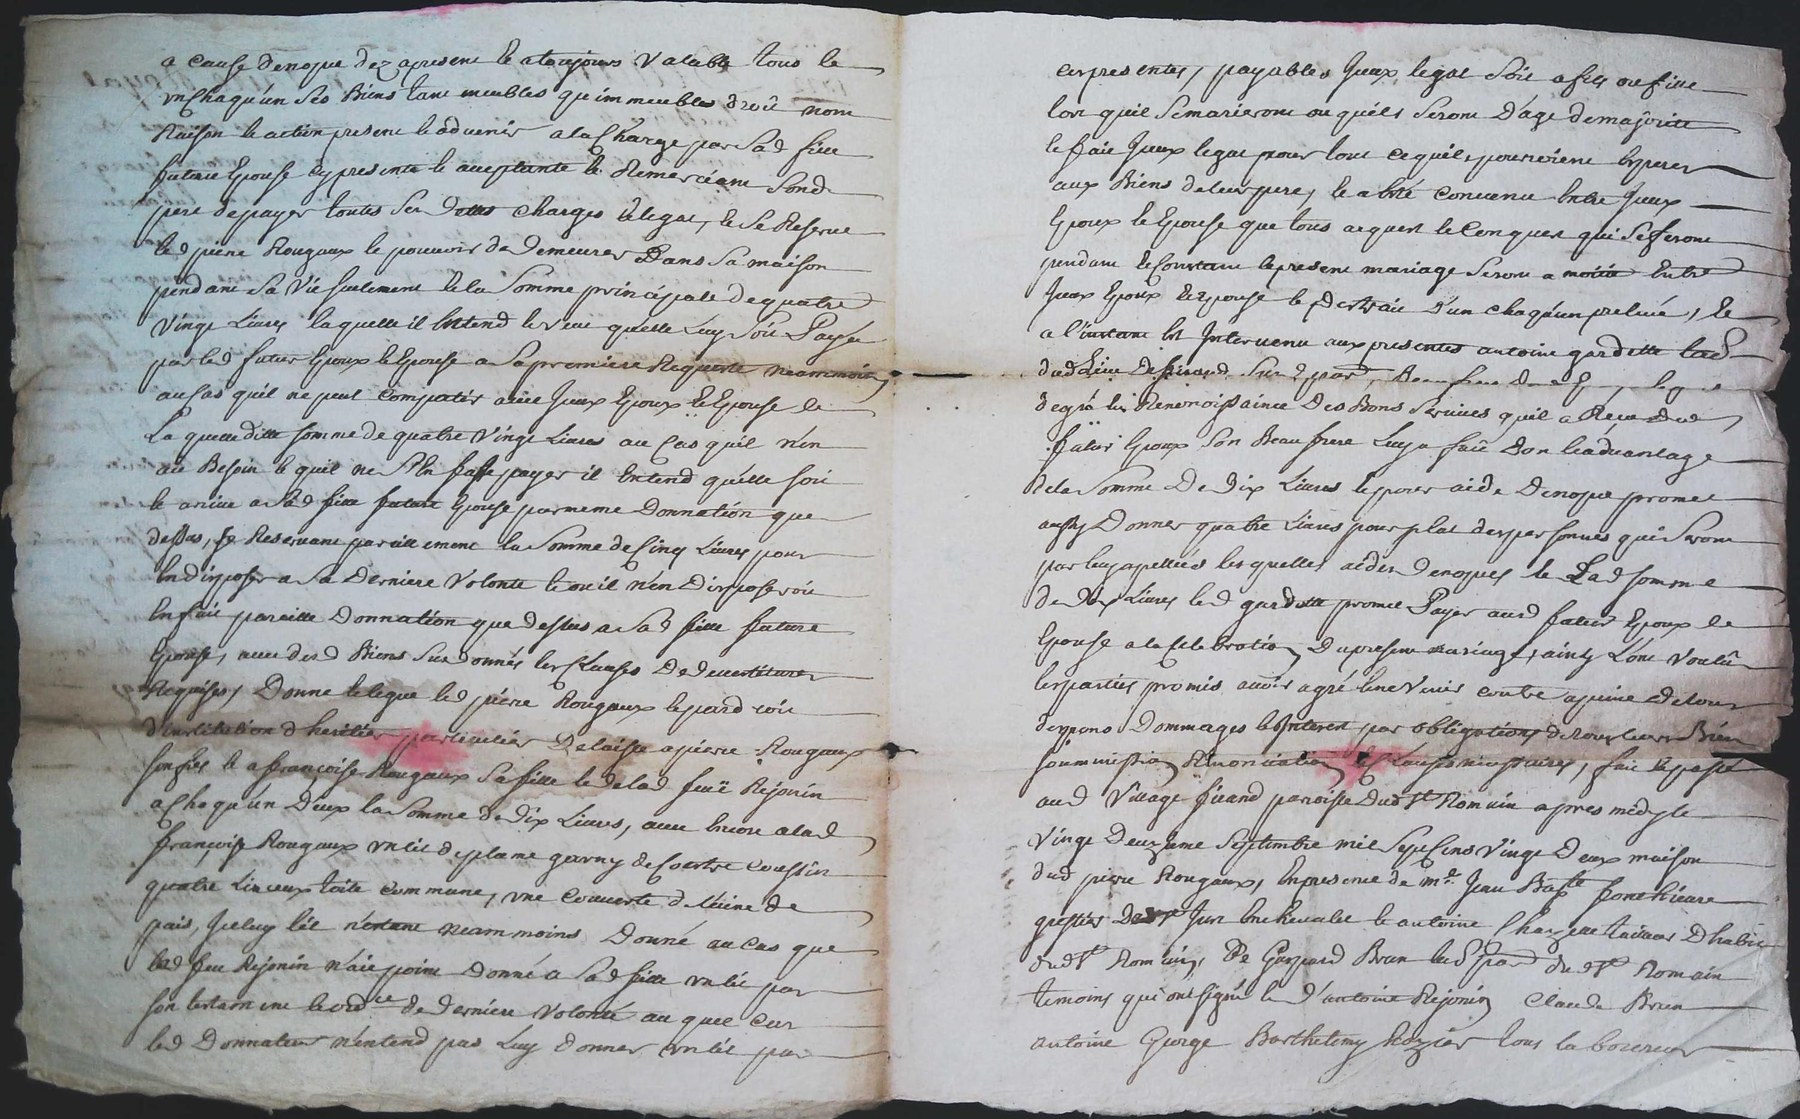 a cause de nopce dez apresent et a toujours Valable tous et
un Chaqu'un Ses Biens tant meubles qu'immeubles droit nom
Raison et action present et advenir a la Charge par Sad fille
future Epouse cy presente et acceptante et Remerciant Sond
pere de payer toutes Ses Dettes Charges et legat, et Se Reserve
led pierre Rougaux le pouvoir de Demeurer Dans Sa maison
pendant Sa Vie Seulement et la Somme principale de quatre
Vingt Livres laquelle il Entend et Veut quelle Luy Soit Payée
par led futur Epoux et Epouse a Sa premiere Requeste neanmoins
au Cas quil ne peut compatir avec Jceux Epoux et Epouse et
La quelle ditte Somme de quatre Vingt Livres au Cas quil n'en
ait Besoin et quil ne S'En fasse payer il Entend qu'elle Soit
et arrive a Sad fille future Epouse par meme Donnation que
dessus, Se Reservant pareillement la Somme de Cinq Livres pour
En disposer a Sa Derniere Volonté et ou il n'En Disposeroit
En fait pareille Donnation que dessus a Sad fille future
Epouse, avec desd Biens Sus donnés les Clauses De devestiture
Requises, Donne et legue led pierre Rougaux et par droit
d'institution d'heritier particulier Delaisse a pierre Rougaux
Son fils et a françoise Rougaux Sa fille et de lad feuë Rejonin
a Chaqu'un D'eux la Somme de Dix Livres, avec Encore a lad
françoise Rougaux un lit de plume garny de Coertre Coussin
quatre Linceux toile commune, une Couverte de Laine de
pais, Jceluy lit n'étant neammoins Donné au cas que
lad feu Rejonin n'aie point Donné a Sad fille un lit par
Son testament et ord.ce de derniere Volonté au quel Cas
led Donnateur n'entend pas Luy Donner un lit par
ces presentes, payables Jceux legat Soit a fils ou fille
lors quil Semarieront ou quils Seront D'age de majorité
et fait Jceux legat pour tout ce quils pourroient Esperer
aux Biens de leur pere, et a été Convenu Entre Jceux
Epoux et Epouse que tous acquest et Conquest qui Se feront
pendant et Constant le present mariage Seront a moitié Entre
Jceux Epoux et Epouse le Destrait D'un chaqu'un prelevé, Et
a l'instant Est Intervenu aux presentes antoine gardette lab.r
dud Lieu De fixard Susd par, Beau frere
de gré En Reconoissaince Des Bons Services qu'il a Reçu Dud
futur Epoux Son Beau frere Luy a fait Don et advantage
De la Somme De Dix Livres et pour aide De nopce promet
aussy Donner quatre Livres pour plat des personnes qui Seront
par Luy apellées lesquelles aides De nopces et Lad Somme
de Dix Livres led gardette promet Payer aud futur Epoux et
Epouse a la Celebration Du present mariage, ainsy L'ont Voulu
les parties promis avoir agré et ne Venir contre a peine De tous
depens Dommages et Interest par obligations de tous leurs Biens
Soummission Renonciation Et Clauses necessaires, fait et passé
aud Village fixard paroisse Dud S.t Romain apres midy le
Vingt Deuxieme Septembre mil Sept Cens Vingt Deux maison
dud pierre Rougaux, En presence de m.e Jean Bap.te
greffier De S.t Just En chevalet et antoine Chazelle tailleur D'habit
dud S.t Romain, Et Gaspard Brun lab.r par dud S.t Romain
temoins qui ont Signé et d'antoine Rejonin Claude Brun
antoine George Barthelemy Rozier tous laboureur